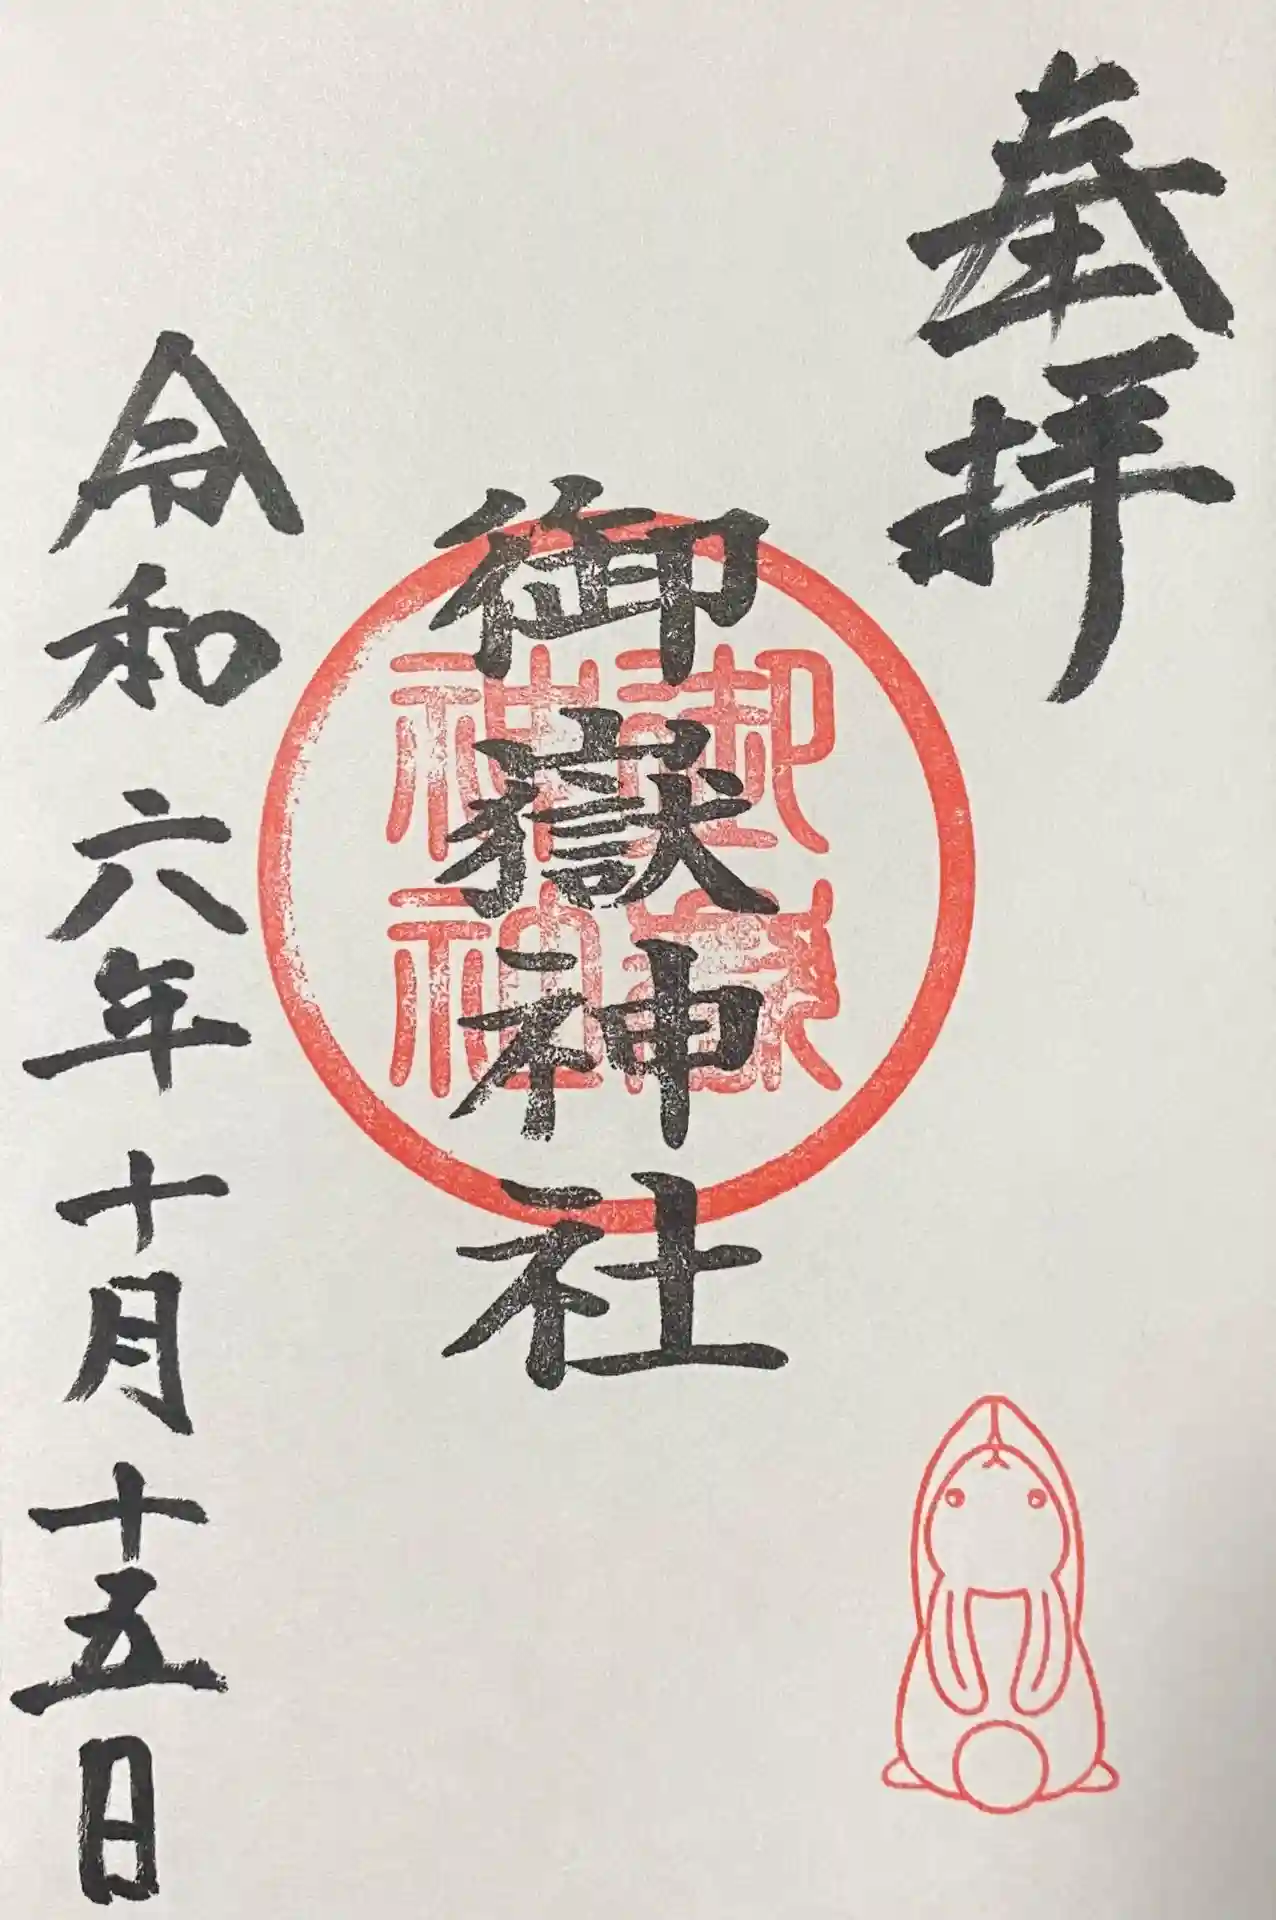 奉拝
御嶽神社
御嶽神社
令和六年十月十五日